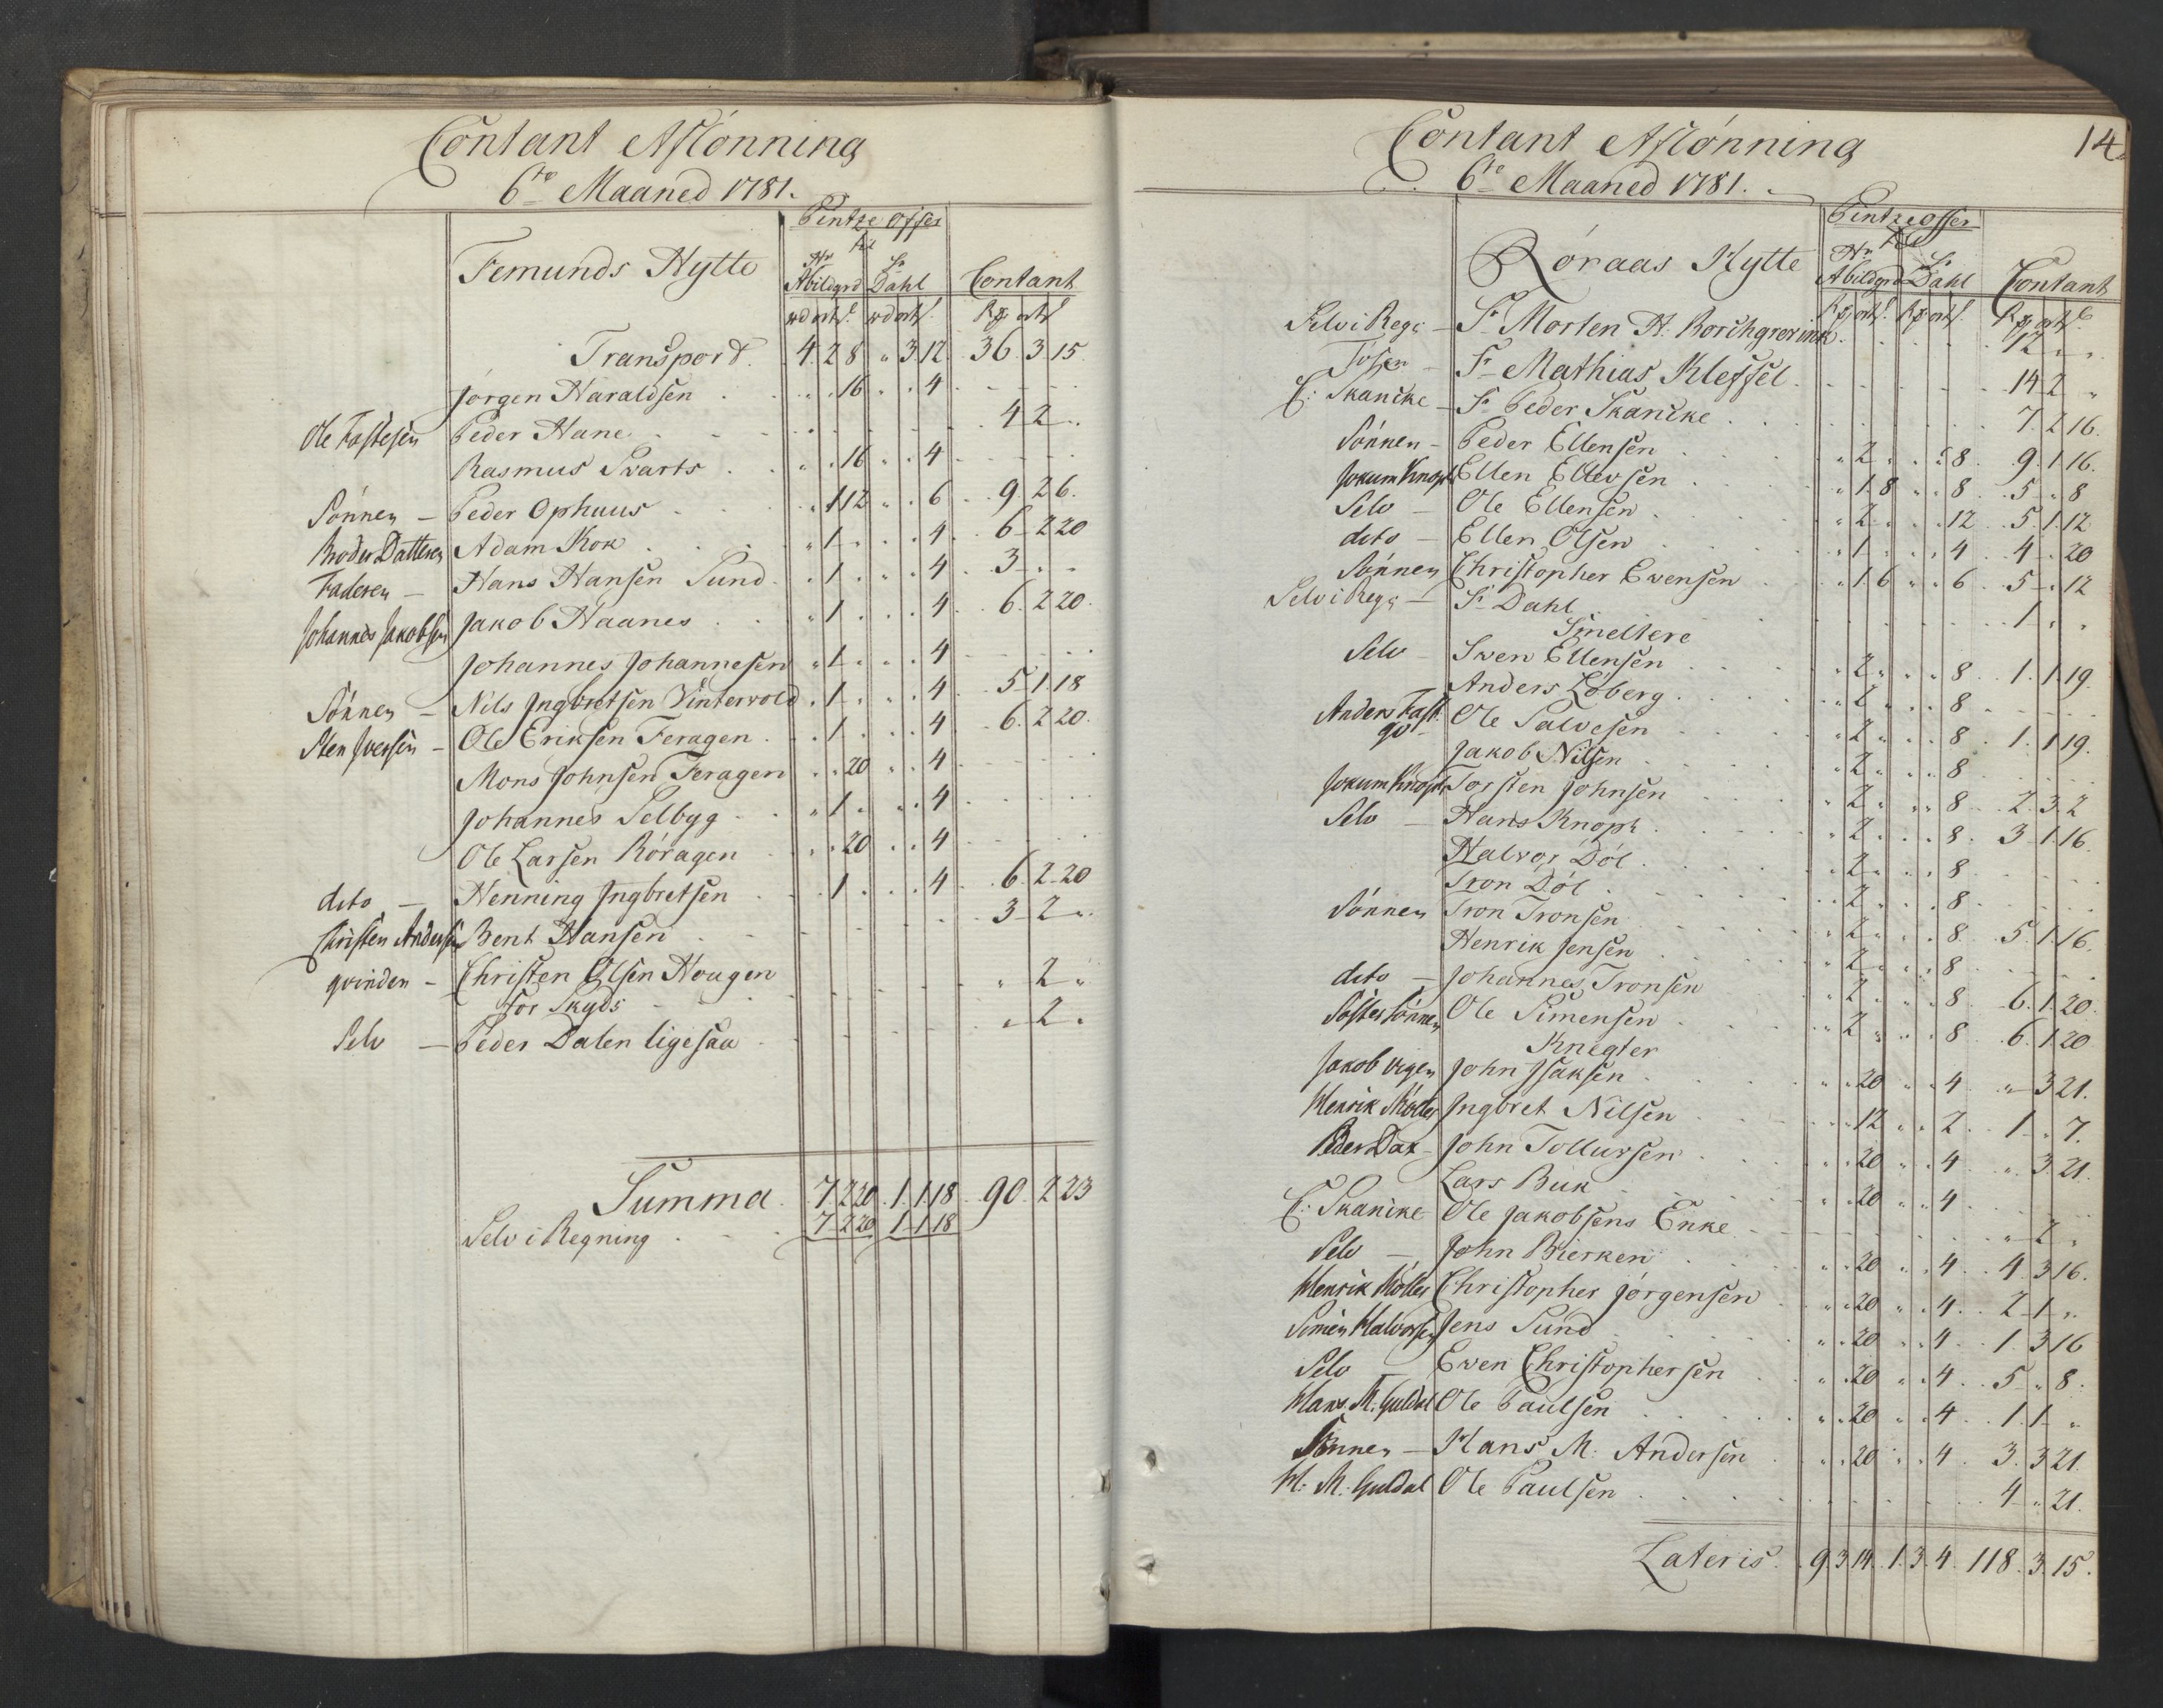 Contant Aflönning
6te Maaned 1781.
Pintze Offer
til
Femunds Hytte Hr Abildgrd Sr Dahl Contant
rd ort s. rd ort s. Rd ort s
Transport. 4. 2 8 " 3 12. 36. 3 15
Jörgen Haraldsen " . 16 " . 4
Ole Fastesen Peder Hane 4 2 "
Rasmus Swarts " . 16 " . 4
Sönnen – Peder Ophuus " 1 12 " . 6 9. 2 6.
Broder Datteren Adam Kok " 1 . " . 4 6. 2 20
Faderen – Hans Hansen Sund " 1 . " . 4 3 . "
Johannes Jakobsen Jakob Haanes " 1 . " . 4 6. 2 20
Johannes Johannesen " 1 . " . 4
Sönnen – Nils Ingbretsen Vinterwold " 1 . " . 4 5 1 18
Sten Iversen – Ole Eriksen Feragen " 1 . " . 4 6. 2 20
Mons Johnsen Feragen " . 20 " . 4
Johannes Selbyg " 1 . " . 4
Ole Larsen Röragen " . 20 " . 4
dito – Henning Ingbretsen " 1 . " . 4 6. 2 20
Christen Andersen Bent Hansen 3 2 "
qvinden – Christen Olsen Hougen
for Skyds " 2 "
Selv – Peder Dalen ligesaa " 2 "
Summa 7. 2 20 1. 1 18 90. 2 23
Selv i Regning 7 2 20 1 1 18
14.
Contant Aflönning
6te Maaned 1781.
Pintze Offer
til
Röraas Hytte Hr Abildgrd Sr Dahl Contant
Rd ort s. Rd ort s. Rd ort s.
Selv i Regg – Sr Morten H. Borchgrevink 12 " "
Sr Mathias Kleffel 14 2 "
E: Skancke – Sr Peder Skancke 7. 2 16.
Sönnen – Peder Ellensen " 2 " " . 8 9. 1 16.
Jokum Knoph Ellen Ellevsen " 1 8 " . 8 5 " 8
Selv – Ole Ellensen " 2 " " . 12 5. 1 12
dito – Ellen Olsen " 1 " " . 4 4 . 20
Sönnen Christopher Ewensen " 1 6 " . 6 5 . 12
Selv i Regg – Sr Dahl 1 " "
Smeltere
Selv – Swen Ellensen " 2 " " . 8 1. 1 19.
Anders Löberg " 2 " " . 8
Anders Fast. Ole Salvesen " 2 " " . 8 1. 1 19.
Jakob Nilsen " 2 " " . 8
Jokum Knoph Torsten Johnsen " 2 " " . 8 2 3 2
Selv – Hans Knoph " 2 " " . 8 3 1 16.
Halvor Döl " 2 " " . 8
Tron Döl " 2 " " . 8
Sönnen Tron Tronsen " 2 " " . 8 5. 1 16.
Henrik Jensen " 2 " " . 8
dito – Johannes Tronsen " 2 " " . 8 6. 1 20.
Söster Sönnen Ole Simensen " 2 " " . 8 6. 1 20
Knegter
Jakob Vigen John Isaksen " . 20 " . 4 " 3 21.
Henrik Möller Ingbret Nilsen " . 12 " . 2 1 " 7.
Peder Dax – John Tollursen " . 20 " . 4 " 3 21.
Lars Buk " . 20 " . 4
E: Skancke Ole Jakobsens Enke " 2 "
Selv – John Bierken " . 20 " . 4 4. 3 16.
Henrik Möller Christopher Jörgensen " . 20 " . 4 2 1 "
Simen Halvorsen Jens Sund " . 20 " . 4 1. 3 16
Selv – Ewen Christophersen " . 20 " . 4 5 " 8
Hans M. Guldal Ole Paulsen " . 20 " . 4 1 1 "
Sönnen – Hans M. Andersen " . 20 " . 4 3. 3 21
H: M. Guldal Ole Paulsen 4 " 21.
Lateris. 9 3 14. 1. 3. 4. 118. 3. 15.